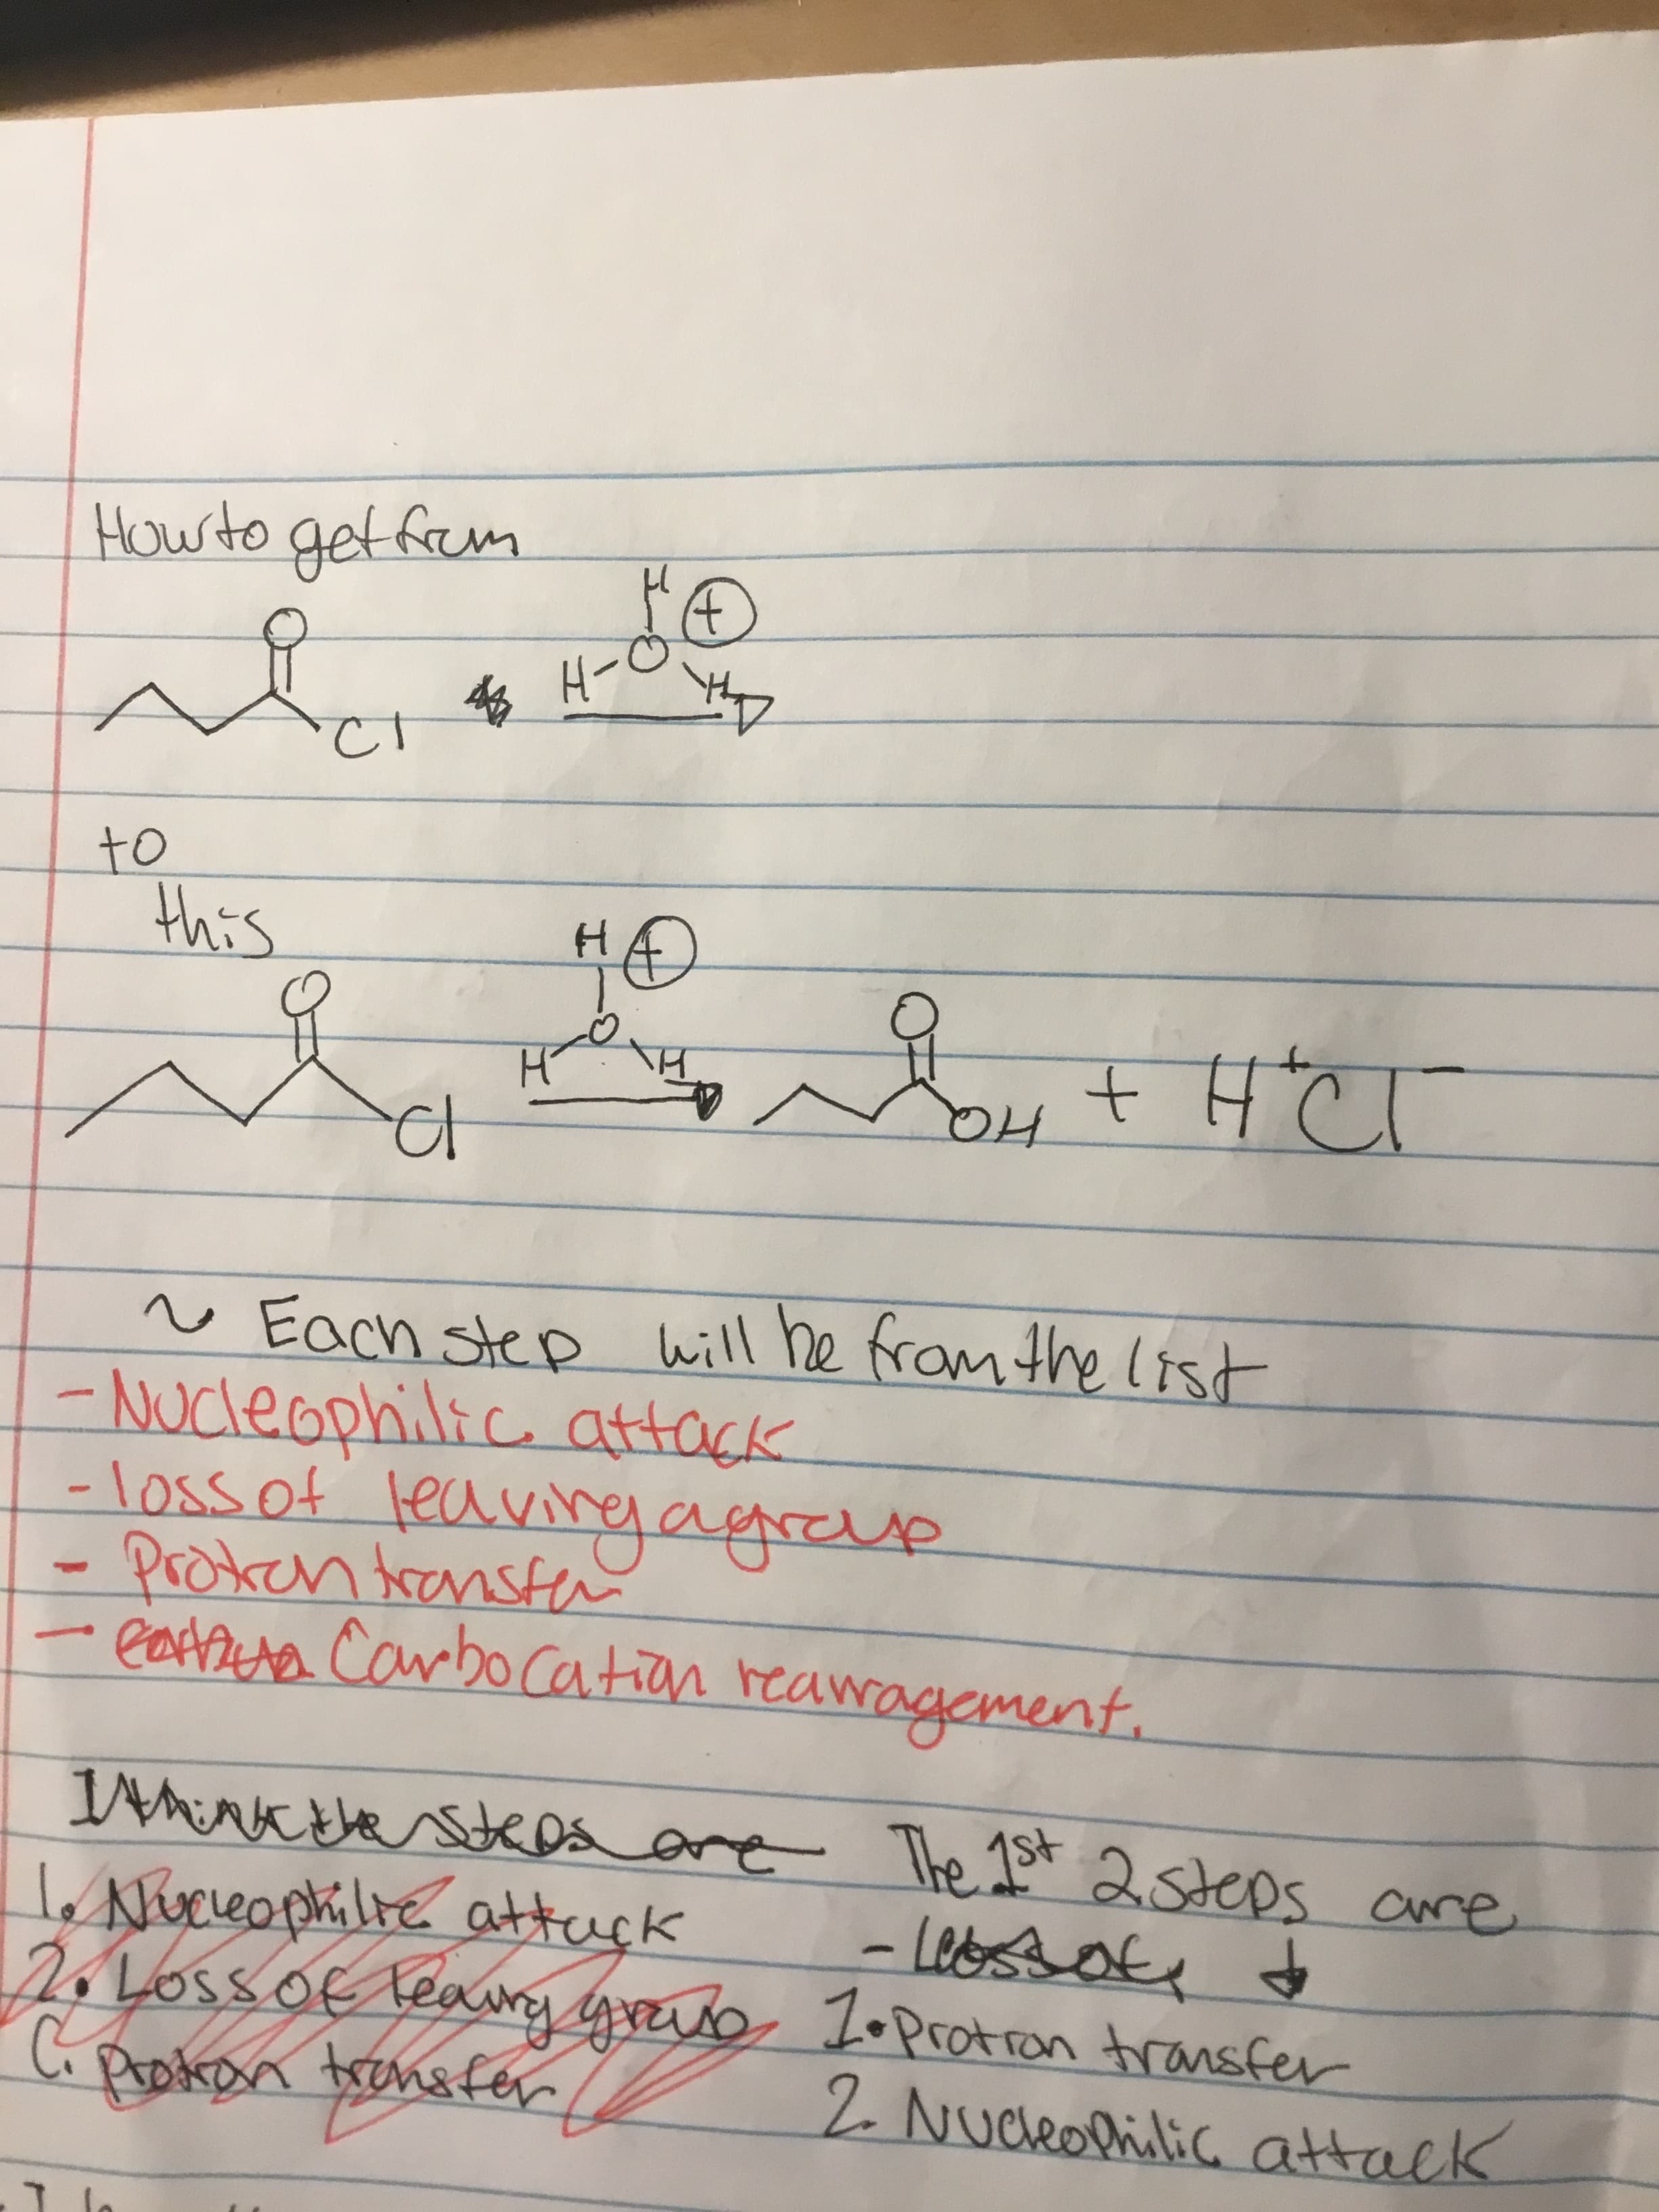 How to get from
O
H
+
O
H
H
Cl
to
this
H
+
O
O
O
H
H
Cl
OH + H+Cl-
~ Each step will be from the list
- Nucleophilic attack
- loss of leaving agroup
- Protron transfer
- Carbocation rearragement.
I think the steps are
The 1st 2 steps are
1. Nucleophilic attack
- Loss of, ↓
2. Loss of leaving group
1. Protron transfer
C. Protron transfer
2. Nucleophilic attack